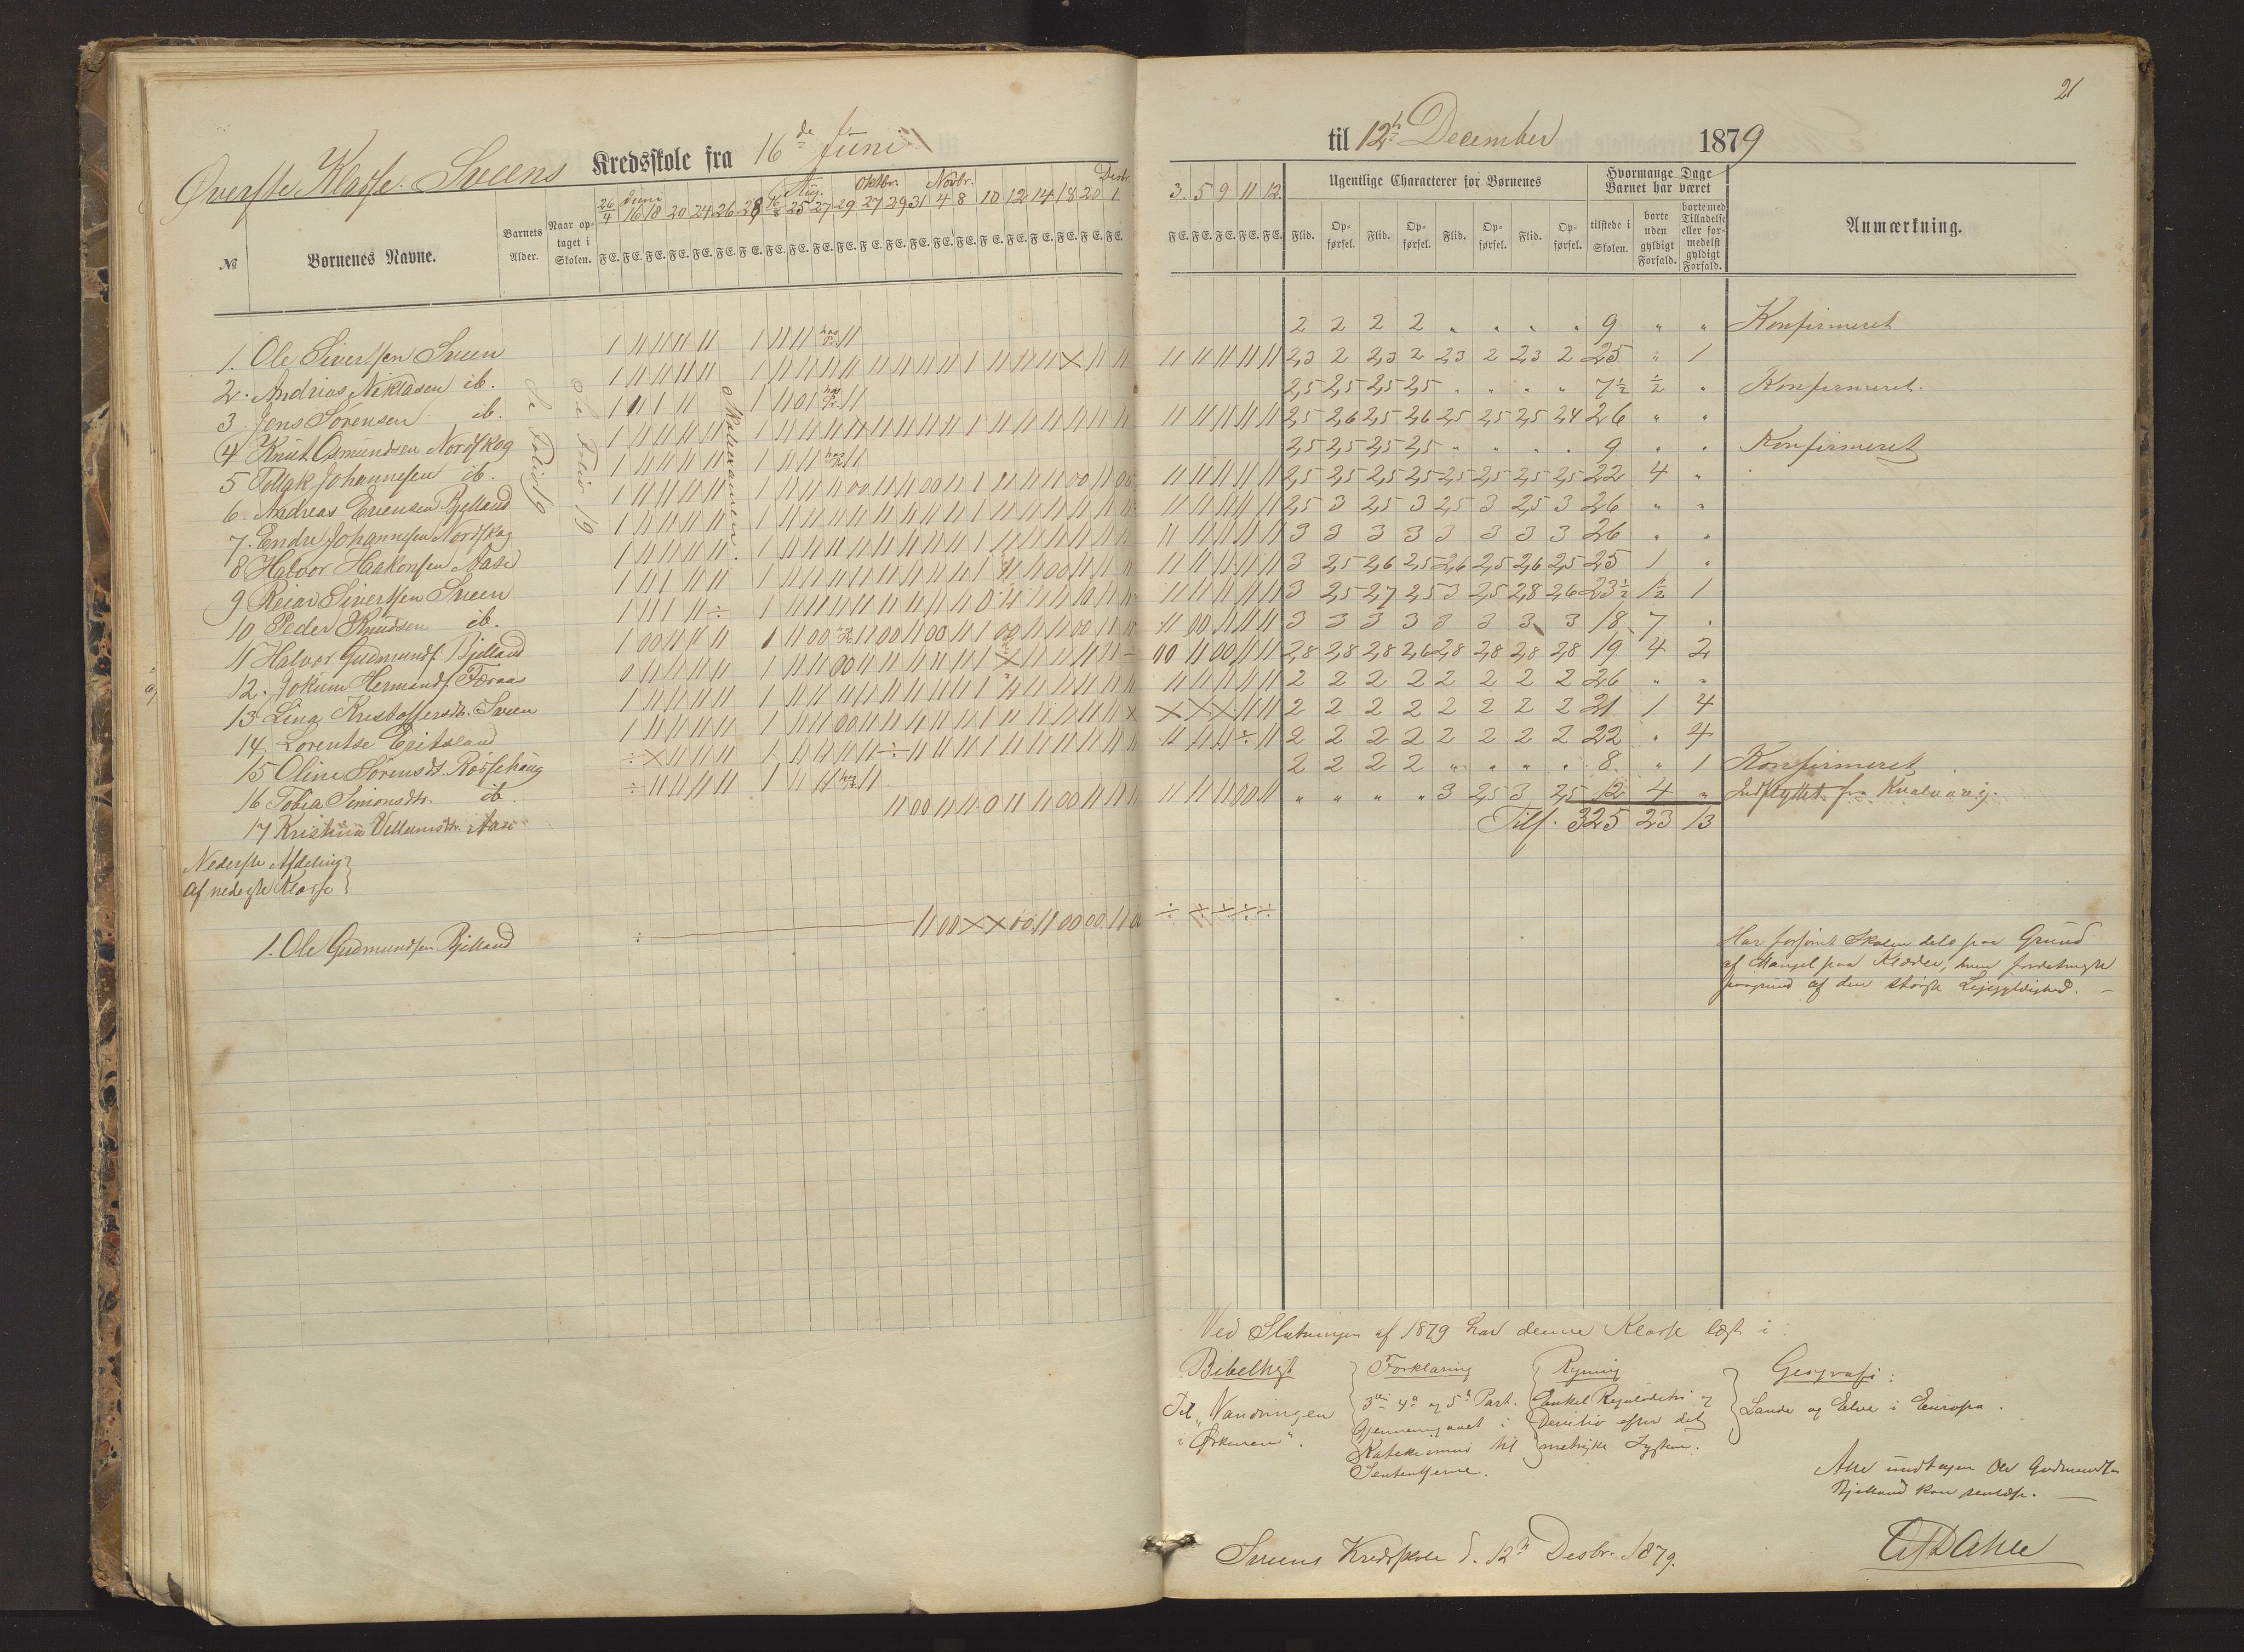 21
Øverste Klasse. Sveens Kredsskole fra 16de Juni til 12te December 1879
Juni Aug. Oktbr. Novbr. Desbr.
26/4 16 18 20 24 26 28 25 27 29 27 29 31 4 8 10 12 14 18 20 1 3. 5 9 11 12.
№ Børnenes Navne. Barnets Alder. Naar optaget i Skolen. F E. Ugentlige Characterer for Børnenes Flid. Opførsel. Flid. Opførsel. Flid. Opførsel. Flid. Opførsel. Hvormange Dage Barnet har været tilstede i Skolen. borte uden gyldigt Forfald. borte med Tilladelse eller formedelst gyldigt Forfald. Anmærkning.
Se Folio 19
Se Folio 19
1. Ole Sivertsen Sveen 2 2 2 2 " " " " 9 " " Konfirmeret
2. Andrias Niklasen ib. 2,3 2 2,3 2 2,3 2 2,3 2 25 " 1
3. Jens Sørensen ib. 2,5 2,5 2,5 2,5 " " " " 7½ ½ " Konfirmeret.
4 Knut Osmundsen Nordskog 2,5 2,6 2,5 2,6 2,5 2,5 2,5 2,4 26 " "
5 Tollak Johannesen ib. 2,5 2,5 2,5 2,5 " " " " 9 " " Konfirmeret
6. Andreas Evensen Bjelland 2,5 2,5 2,5 2,5 2,5 2,5 2,5 2,5 22 4 "
7. Endre Johannesen Nordskog 2,5 3 2,5 3 2,5 3 2,5 3 26 " "
8 Halvor Haakonsen Aase 3 3 3 3 3 3 3 3 26 " "
9 Reiar Sivertsen Sveen 3 2,5 2,6 2,5 2,6 2,5 2,6 2,5 25 1 "
10 Peder Knudsen ib. 3 2,5 2,7 2,5 3 2,5 2,8 2,6 23½ 1½ 1
11 Halvor Gudmunds. Bjelland 3 3 3 3 3 3 3 3 18 7 "
12. Jokum Hermands. Færaas 2,8 2,8 2,8 2,6 2,8 2,8 2,8 2,8 19 4 2
13 Lina Kristoffersdtr. Sveen 2 2 2 2 2 2 2 2 26 " "
14 Lorentse Eritsland 2 2 2 2 2 2 2 2 21 1 4
15 Oline Sørensdt. Rossehaug 2 2 2 2 2 2 2 2 22 " 4
16 Tobia Simonsdtr. ib. 2 2 2 2 " " " " 8 " 1 Konfirmeret
17 Kristina Villumsdtr. Aase " " " " 3 2,5 3 2,5 12 4 " Indflyttet fra Kvalvaag.
Tils. 325 23 13
Nederste Afdeling
af nederste Klasse
1. Ole Gudmundsen Bjelland
Har forsømt Skolen dels paa Grund
af Mangel paa Klæder, men fordetmeste
paagrund af den største Ligegyldighed. –
Ved Slutningen af 1879 har denne Klasse læst i:
Bibelhist Forklaring Regning Geografi:
Til "Vandringen 3die 4de og 5te Part. Enkel Reguladetri og Lande og Elve i Europa.
i Ørkenen". Gjennemgaaet i Decitiv efter det
Katekismus til metriske System.
Sententserne.
Alle undtagen Ole Gudmundsen
Bjelland kan renlæse. –
Sveens Kredsskole d. 12te Desbr. 1879.